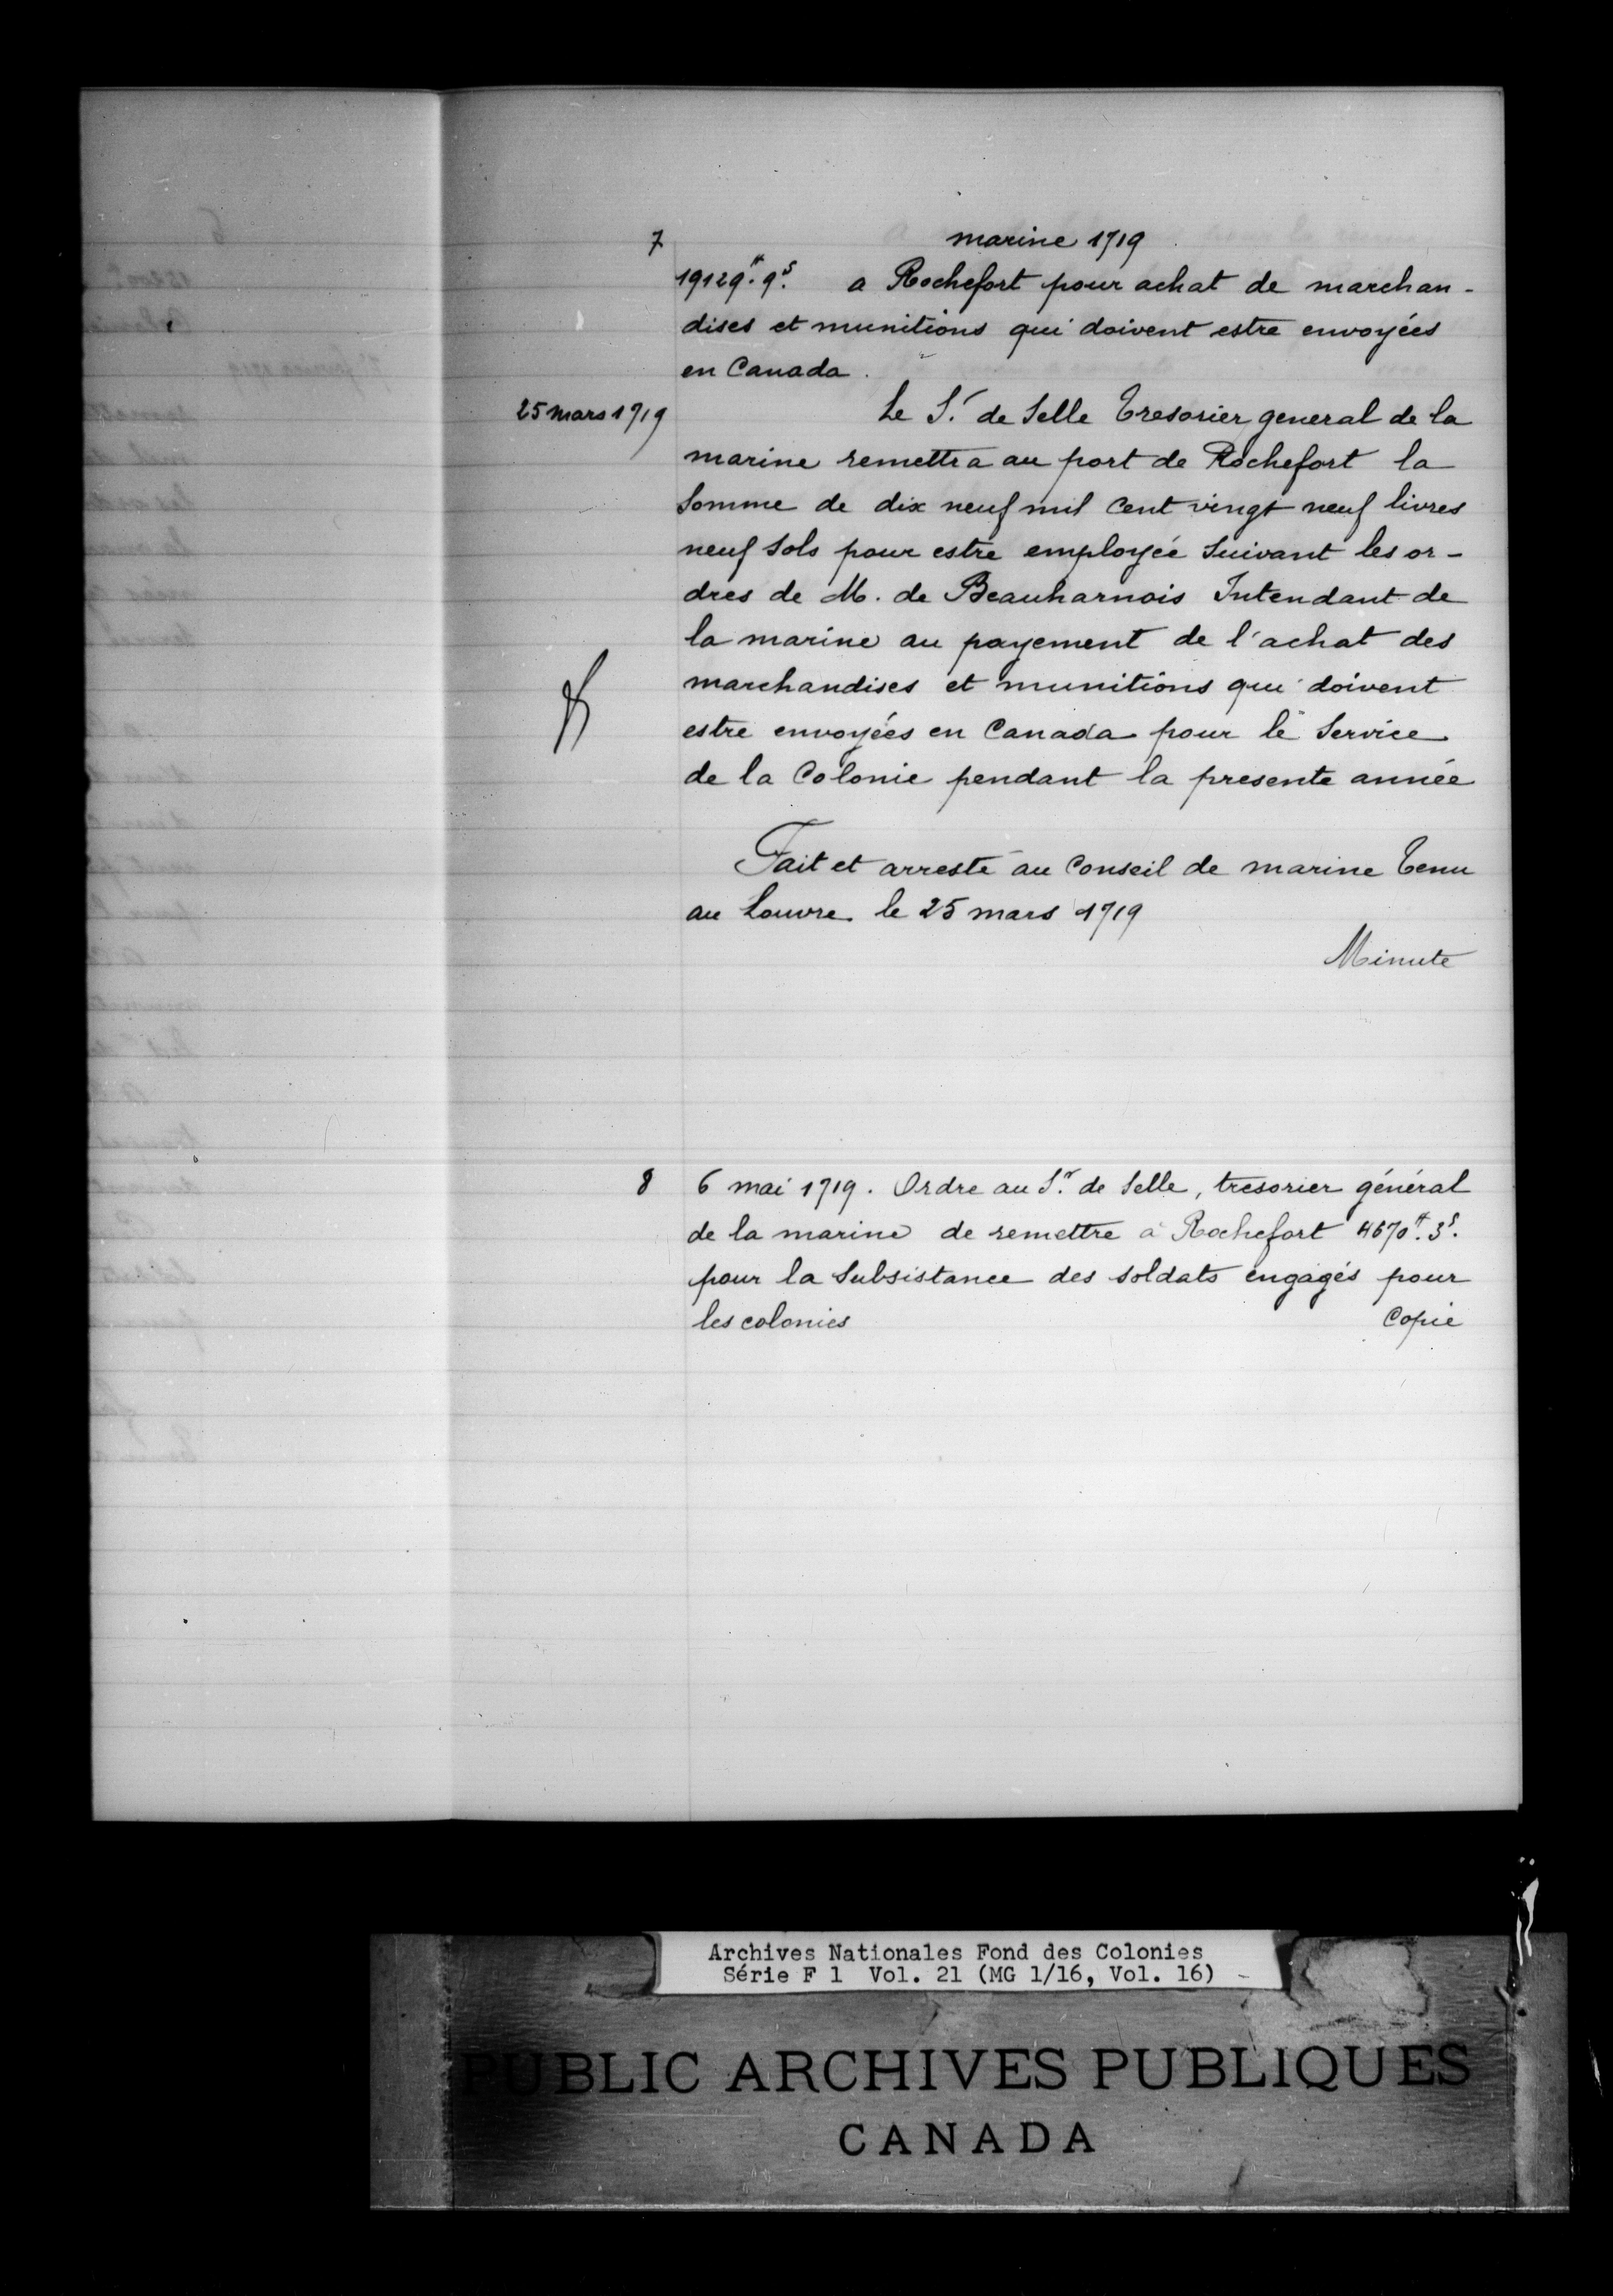 7 marine 1719
19129#. 9s. a Rochefort pour achat de marchan-
dises et munitions qui doivent estre envoyées
en Canada.
25 mars 1719 Le Sr. de Selle Tresorier general de la
marine remettra au port de Rochefort la
Somme de dix neuf mil cent vingt neuf livres
neuf Sols pour estre employée Suivant les or-
dres de M. de Beauharnois Intendant de
la marine au payement de l'achat des
marchandises et munitions qui doivent
estre envoyées en Canada pour le Service
de la Colonie pendant la presente année
Fait et arresté au Conseil de marine Tenu
au Louvre le 25 mars 1719
Minute
8 6 mai 1719. Ordre au Sr. de Selle, tresorier général
de la marine de remettre à Rochefort 4670#. 3s.
pour la Subsistance des soldats engagés pour
les colonies Copie
Archives Nationales Fond des Colonies
Série F 1 Vol. 21 (MG 1/16, Vol. 16)
PUBLIC ARCHIVES PUBLIQUES
CANADA